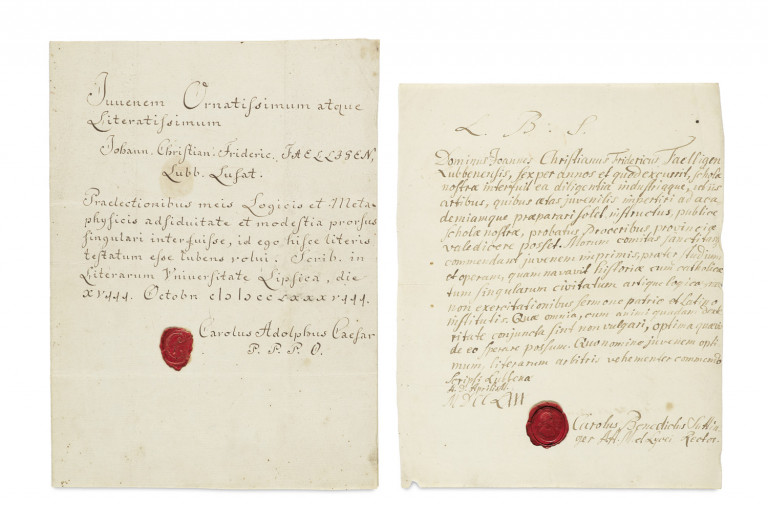 Juvenem Ornatissimum atque
Literatissimum
Johann. Christian. Frideric. FAELLISEN,
Lubb. Lusat.
Praelectionibus meis Logicis et Meta-
physicis adsiduitate et modestia prorsus
singulari interfuisse, id ego hisce literis
testatum esse lubens volui. Scrib. in
Literarum Universitate Lipsica, die
Octobr
Carolus Adolphus Caesar
P. P. P. O.
L. B. S.
Dominus Joannes Christianus Fridericus Faelligen
Lubbenensis, sex per annos et quod excurrit, scholæ
nostræ interfuit ea diligentia industriaque, ut iis
artibus, quibus ætas juvenilis impertiri ad aca
demiamque præparari solet instructus, publice
scholæ nostræ, probatus Proceribus provinciæ
valedicere posset. Morum comitas sanctitas
commendant juvenem imprimis, præter studium
et operam, quam navavit historiæ cum catholicæ
tum singularum civitatum artique logicæ,
non exercitationibus sermone patrio et Latino
institutis. Quæ omnia, cum animi quadam
ritate conjuncta sint non vulgari, optima quæque
de eo sperare possum. Quo nomine juvenem opti
mum, literarum arbitris vehementer commendo
Scripsi Lubbenæ
Aprilis
Carolus Benedictus Suttin
ger Lycei Rector.